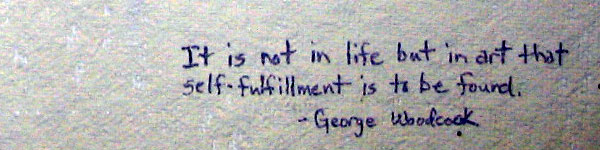 It is not in life but in art that
self-fulfillment is to be found.
- George Woodcock